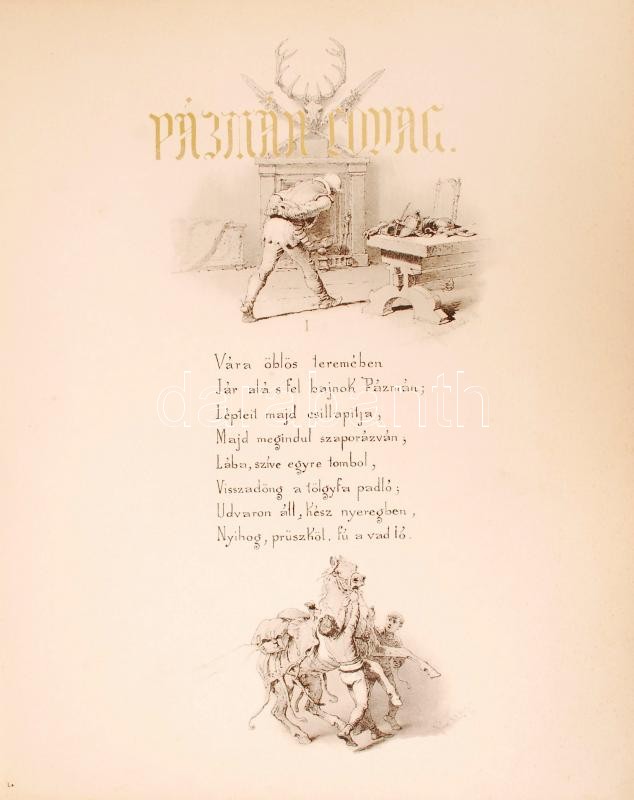 PÁZMÁN LOVAG.
I
Vára öblös teremében
Jár alá s fel bajnok Pázmán;
Lépteit majd csillapítja,
Majd megindul szaporázván;
Lába, szíve egyre tombol,
Visszadöng a tölgyfa padló;
Udvaron áll, kész nyeregben,
Nyihog, prüszköl, fú a vad ló.
darabanth